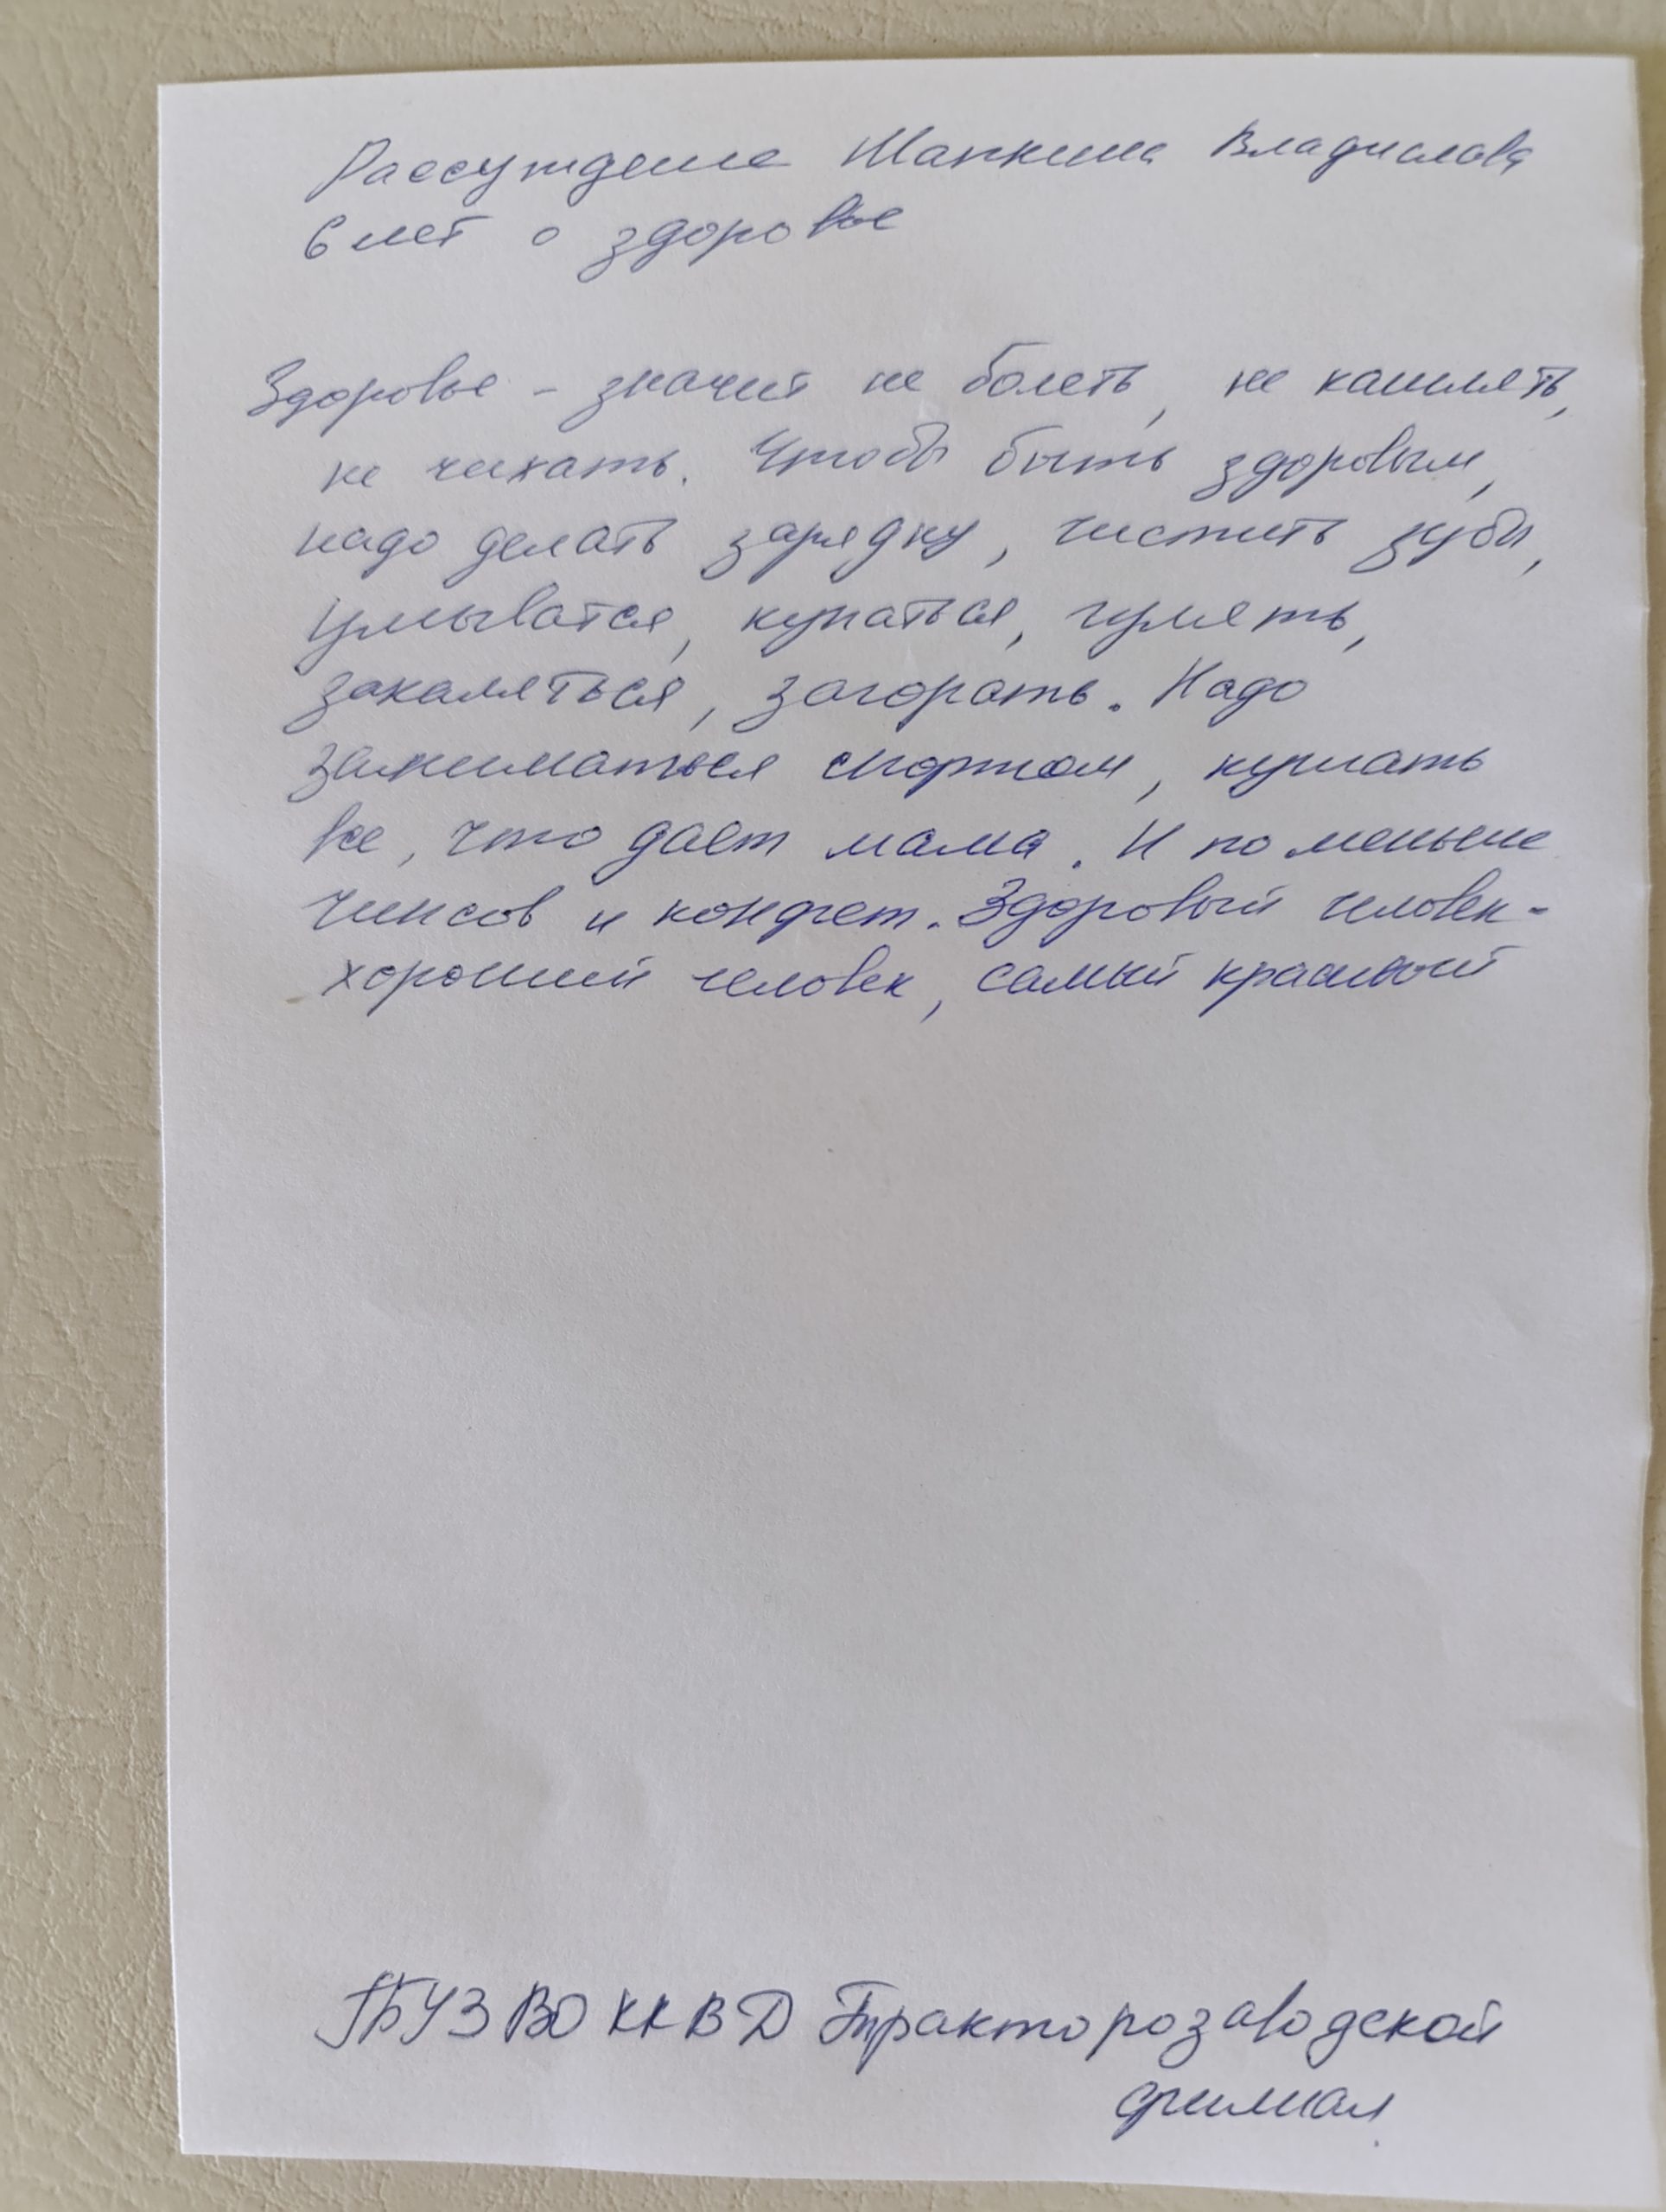 Рассуждение Шапкина Владислава
6 лет о здоровье
Здоровье - значит не болеть, не кашлять,
не чихать. Чтобы быть здоровым,
надо делать зарядку, чистить зубы,
умыватся, купаться, гулять,
закаляться, загорать. Надо
заниматься спортом, кушать
все, что дает мама. И по меньше
чипсов и конфет. Здоровый человек -
хороший человек, самый красивый
ГБУЗ ВО ККВД Тракторозаводской
филиал